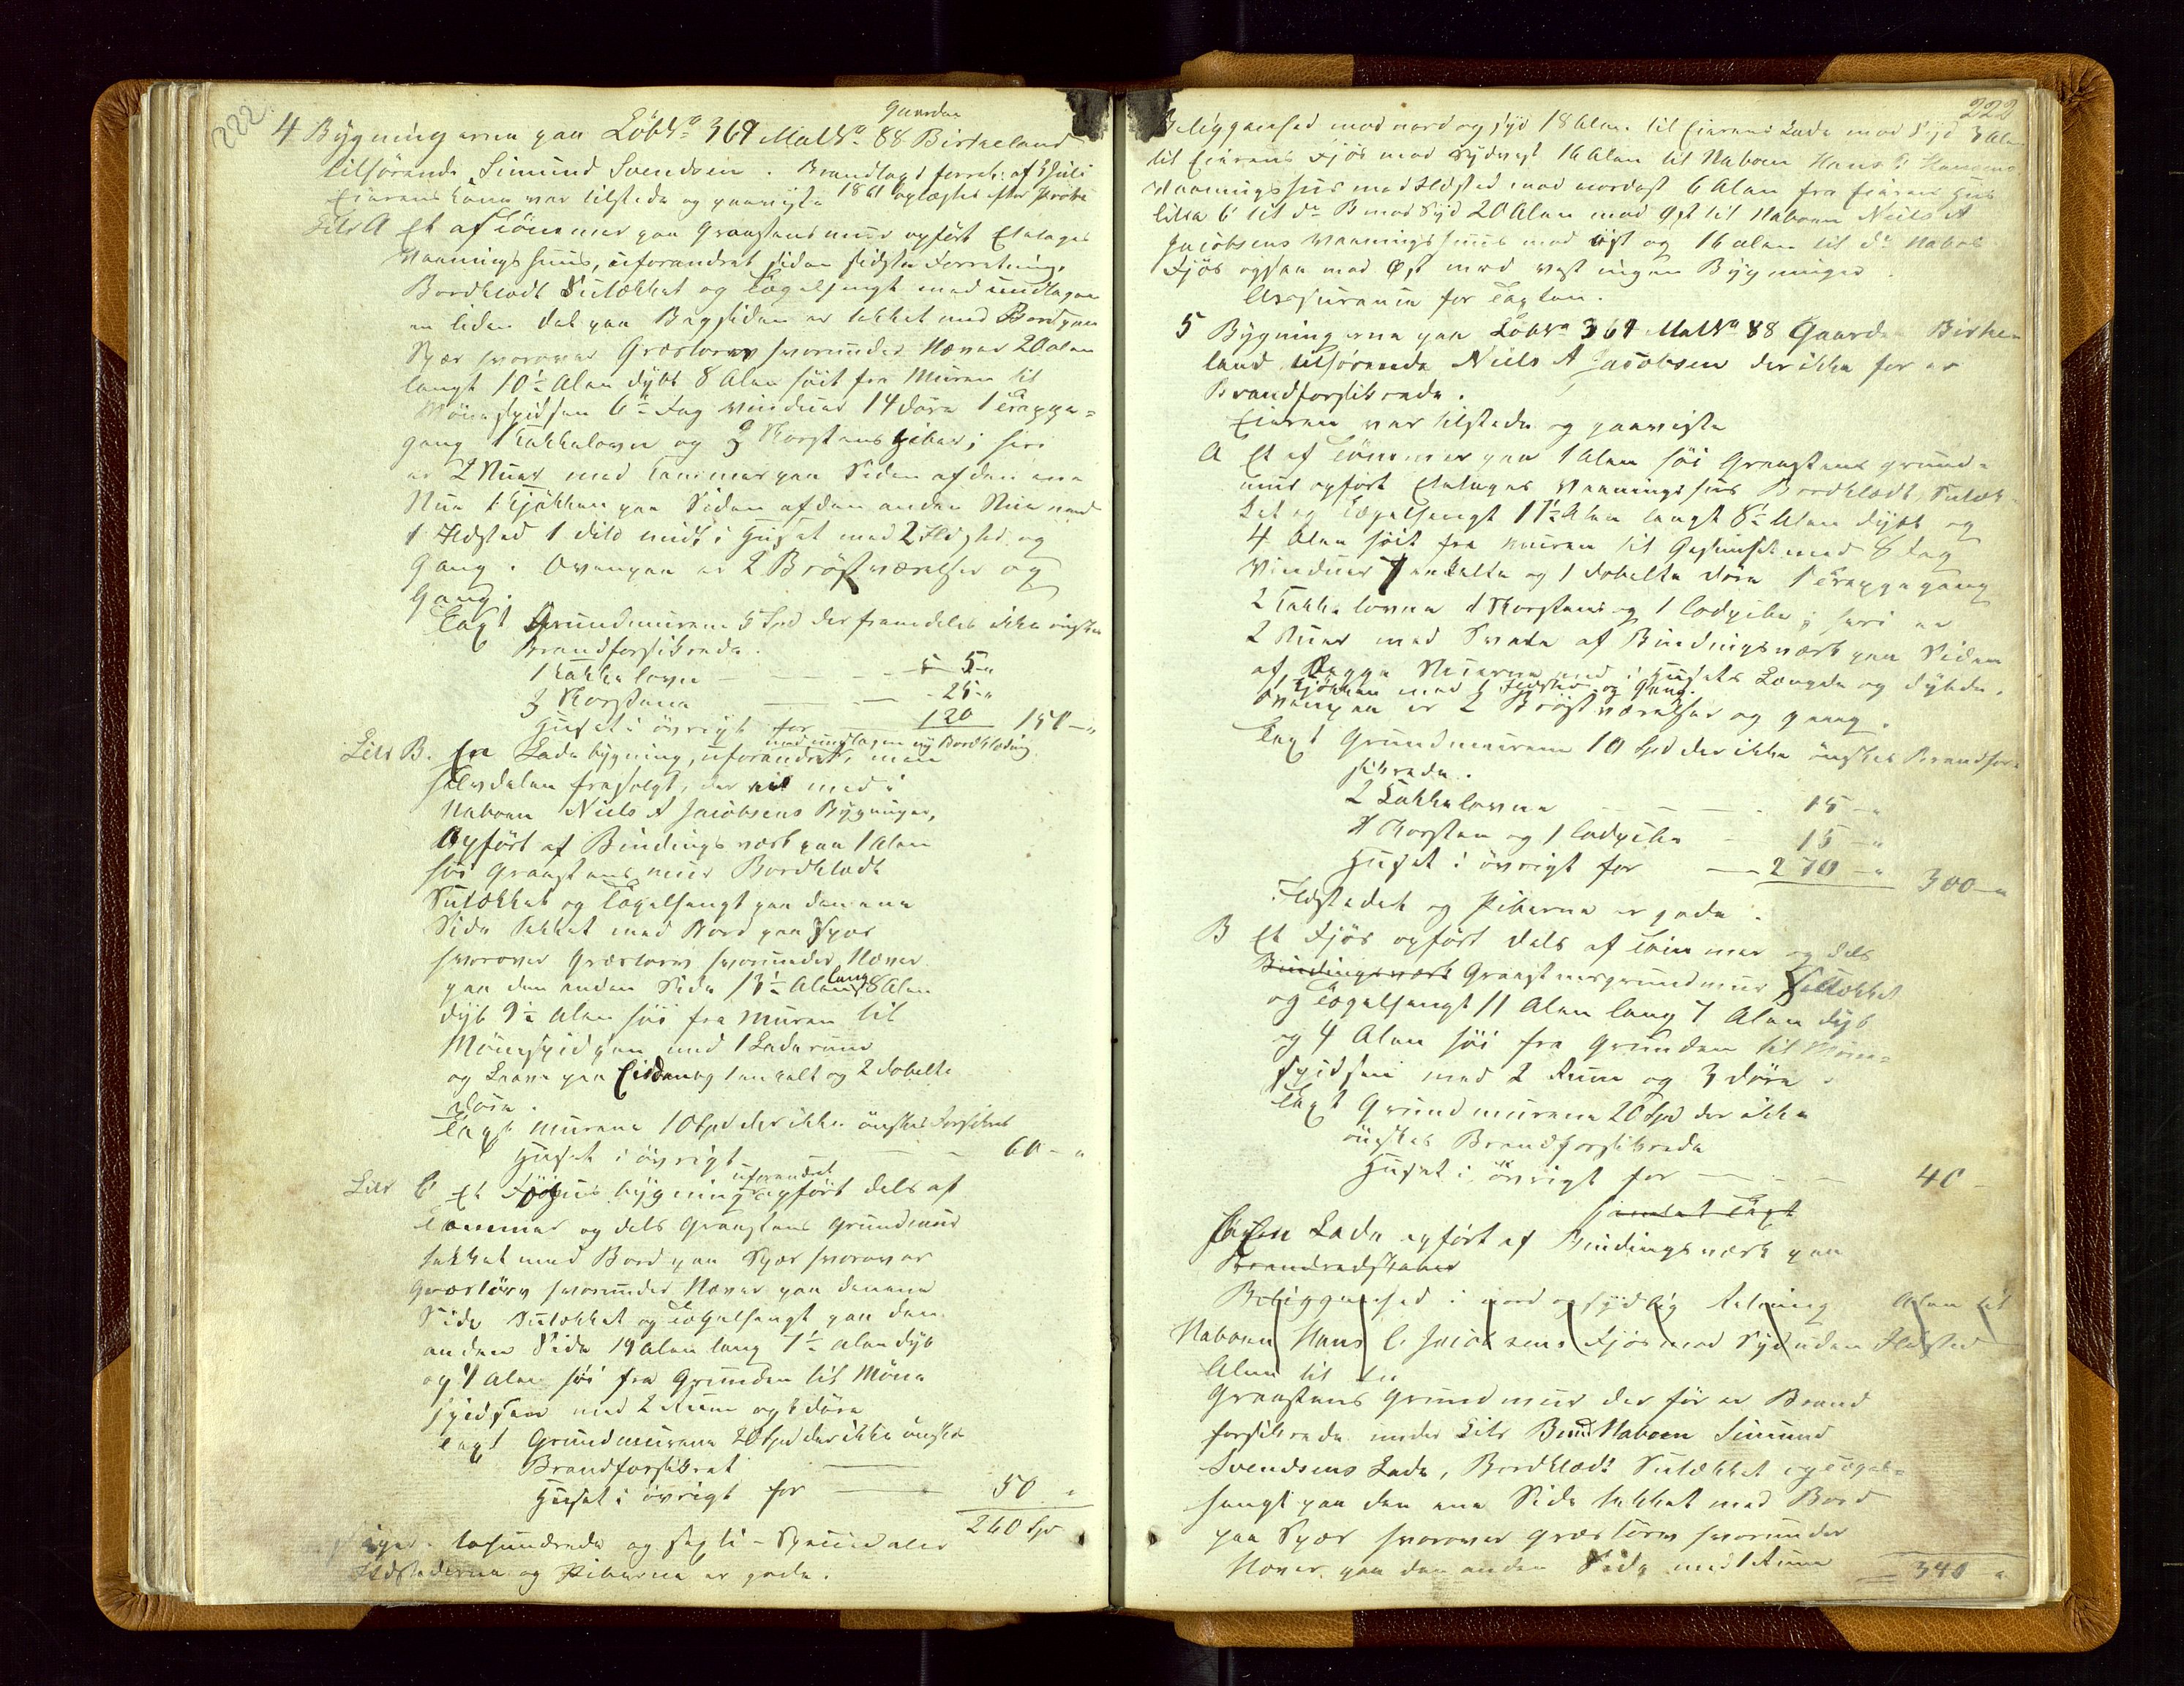 222
4 Bygningerne paa Löb№ 369 Mat№ 88 Gaarden Birkeland
tilhörende Simund Svendsen. Brandtaxt forret: af 3 Juli
Eierens Kone var tilstede og paaviste 1861 oplæstes efter
Litr A Et af Tömmer paa Graastensmuur opfört Etetages
Vaaningshuus, uforandret siden sidste Forretning,
Bordklædt Sutækket og Tegelhengt med undtagen
en liden del paa Bagsiden er tækket med Bord paa
Spær hvorover Græstorv hvorunder Næver 20 Alen
langt 10½ Alen dybt 8 Alen höit fra Muren til
Mönespidsen 6 Fag Vinduer 14 Döre 1 Trappe-
gang 1 Kakkelovn og 3 Skorstens Piber; heri
er 2 Stuer med Kammer paa Siden af den ene
Stue 1 Kjökken paa Siden af den anden Stue med
1 Ildsted 1 dito midt i Huset med 2 Ildsted og
Gang. Ovenpaa er 2 Bröstværelser og
Gang.
Taxt Grundmurene 5 Spd der fremdeles ikke önskes
Brandforsikrede.
1 Kakkelovn 5-"
3 Skorstene 25-"
Huset i övrigt for 120 150-"
Litr B. En Ladebygning, uforandret, med undtagen ny Bordklædning men
halvdelen frasolgt, der nu med i
Naboen Niels A Jacobsens Bygninger,
Opfört af Bindingsværk paa 1 Alen
höi Graastensmuur Bordklædt
Sutækket og Tegelhengt paa den ene
Side tækket med Bord paa Spær
hvorover Græstorv hvorunder Næver
paa den anden Side 13½ Alen lang 8 Alen
dyb 9½ Alen höi fra Muren til
Mönespidsen med 1 Laderum
og Laave paa Siden og 1 enkelt og 2 dobelte
Döre.
Taxt Murene 10 Spd der ikke önskes Forsikret
Huset i övrigt 60-"
Litr C Et Fjöshuusbygning uforandret opfört dels af
Tömmer og dels Graastens Grundmuur
tækket med Bord paa Spær hvorover
Græstörv hvorunder Næver paa den ene
Side Sutækket og Tegelhengt paa den
anden Side 19 Alen lang 7½ Alen dyb
og 4 Alen höi fra Grunden til Möne
spidsen med 2 Rum og Döre
Taxt Grundmurene 20 Spd der ikke önskes
Brandforsikret
Huset i övrigt for 50 "
260 Spd
tohundrede og sexti - Speciedaler
Ildstederne og Piberne er gode.
222
Beliggenhed mod nord og syd 18 Alen til Eierens Lade mod Syd 3 Alen
til Eierens Fjös mod Sydvest 16 Alen til Naboen Hans
Vaaningshuus med Ildsted mod nordost 6 Alen fra Eierens Hus
Litra C til do B mod Syd 20 Alen mod Öst til Naboen Niels A
Jacobsens Vaaningshuus mod Öst og 16 Alen til do Nabos
Fjös ogsaa mod Öst mod vest ingen Bygninger.
Assurance for Taxten.
5 Bygningerne paa Löb№ 369 Mat№ 88 Gaarden Birke-
land tilhörende Niels A Jacobsen der ikke för er
Brandforsikrede.
Eieren var tilstede og paaviste
A Et af Tömmer paa 1 Alen höi Graastens grund-
mur opfört Etetages Vaaningshus Bordklædt, Sutæk
ket og Tegelhengt 11½ Alen langt 8½ Alen dybt og
4 Alen höit fra Muren til Gesimset med 8 Fag
Vinduer 7 enkelte og 1 dobelte Döre 1 Trappegang
2 Kakkelovne 1 Skorstens og 1 Lodpibe; heri er
2 Stuer med Svale af Bindingsværk paa Siden
af begge Stuerne med i Husets Længde og Dybde.
1 Kjökken med 1 Ildsted og Gang.
Ovenpaa er 2 Bröstværelser og gang.
Taxt Grundmurene 10 Spd der ikke önskes Brandfor-
sikrede.
2 Kakkelovne 15-"
1 Skorsten og 1 Lodpibe 15-"
Huset i övrigt for 270-" 300-"
Ildstedet og Piberne er gode.
B Et Fjös opfört dels af Tömmer og dels
Bindingsværk Graastensgrundmuur Sutækket
og Tegelhengt 11 Alen lang 7 Alen dyb
og 4 Alen höi fra Grunden til Möne-
spidsen med 2 Rum og 3 Döre.
Taxt Grundmurene 20 Spd der ikke
önskes Brandforsikrede
Huset i övrigt for 40-
samlet Taxt
En Lade opfört af Bindingsværk paa
Brandredskaber
Beliggenhed i nord og sydlig Retning Alen til
Naboen Hans C Jacobsens Fjös mod Syd uden Ildsted
Alen til
Graastens Grundmuur der för er Brand
forsikrede under Litr B med Naboen Simund
Svendsens Lade, Bordklædt Sutækket og Tegel-
hengt paa den ene Side tækket med Bord
paa Spær hvorover Græstörv hvorunder
Næver paa den anden Side med 1 Rum
340 "